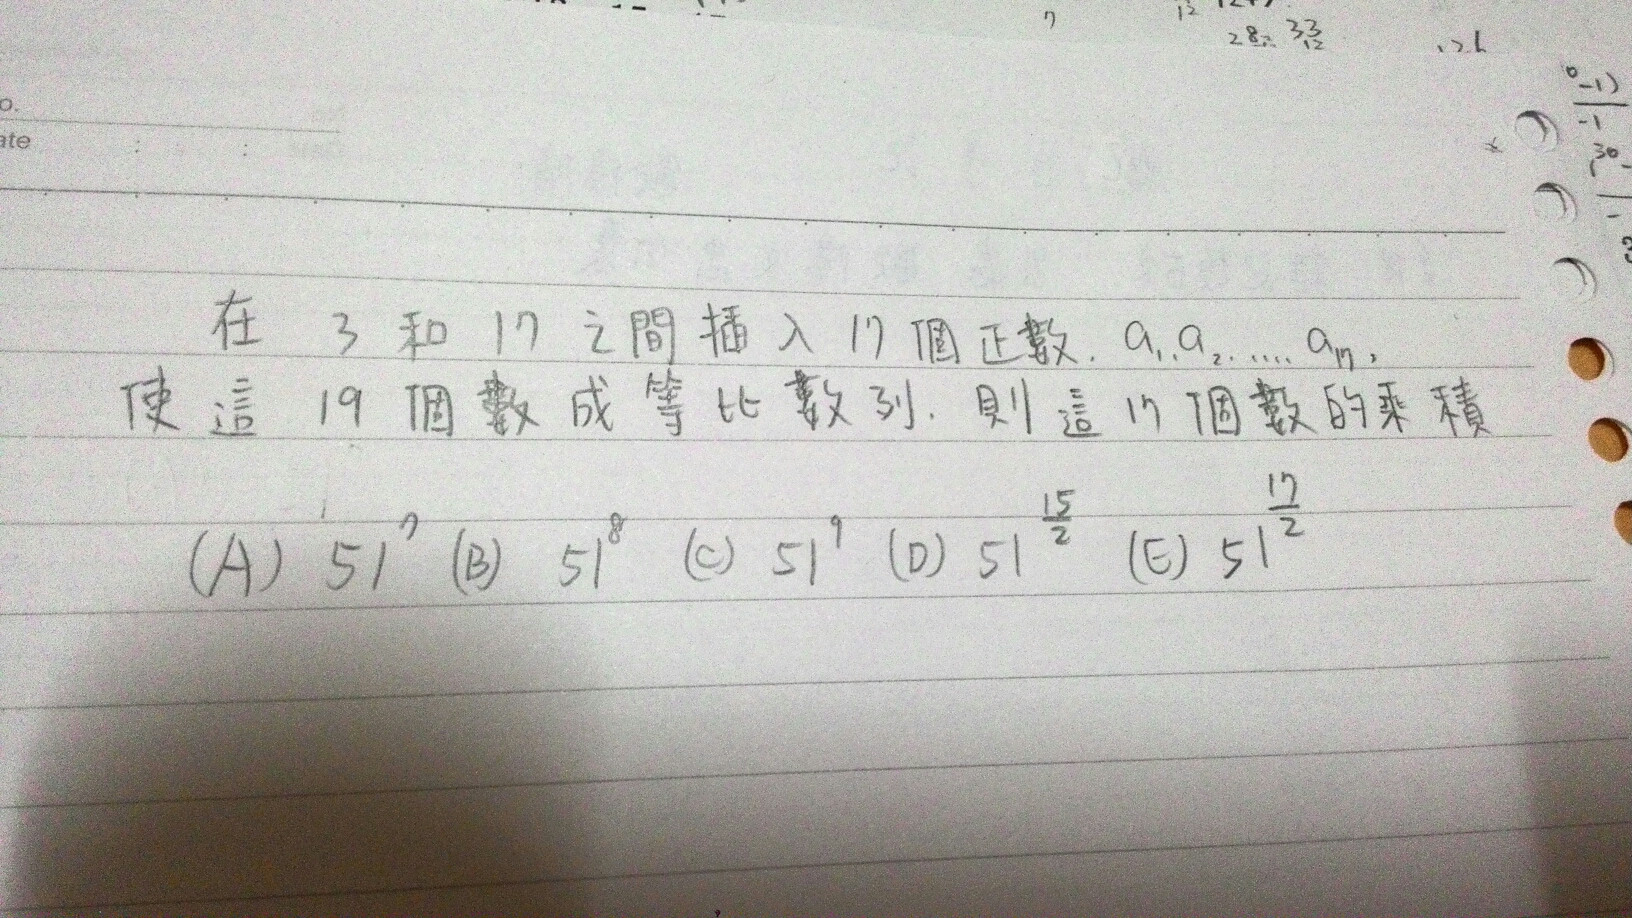 28= 33
12
ate : :
在 3 和 17 之間插入 17 個正數. a₁.a₂.....a₁₇,
使這 19 個數成等比數列. 則這 17 個數的乘積
(A) 51⁷ (B) 51⁸ (C) 51⁹ (D) 51^(15/2) (E) 51^(17/2)